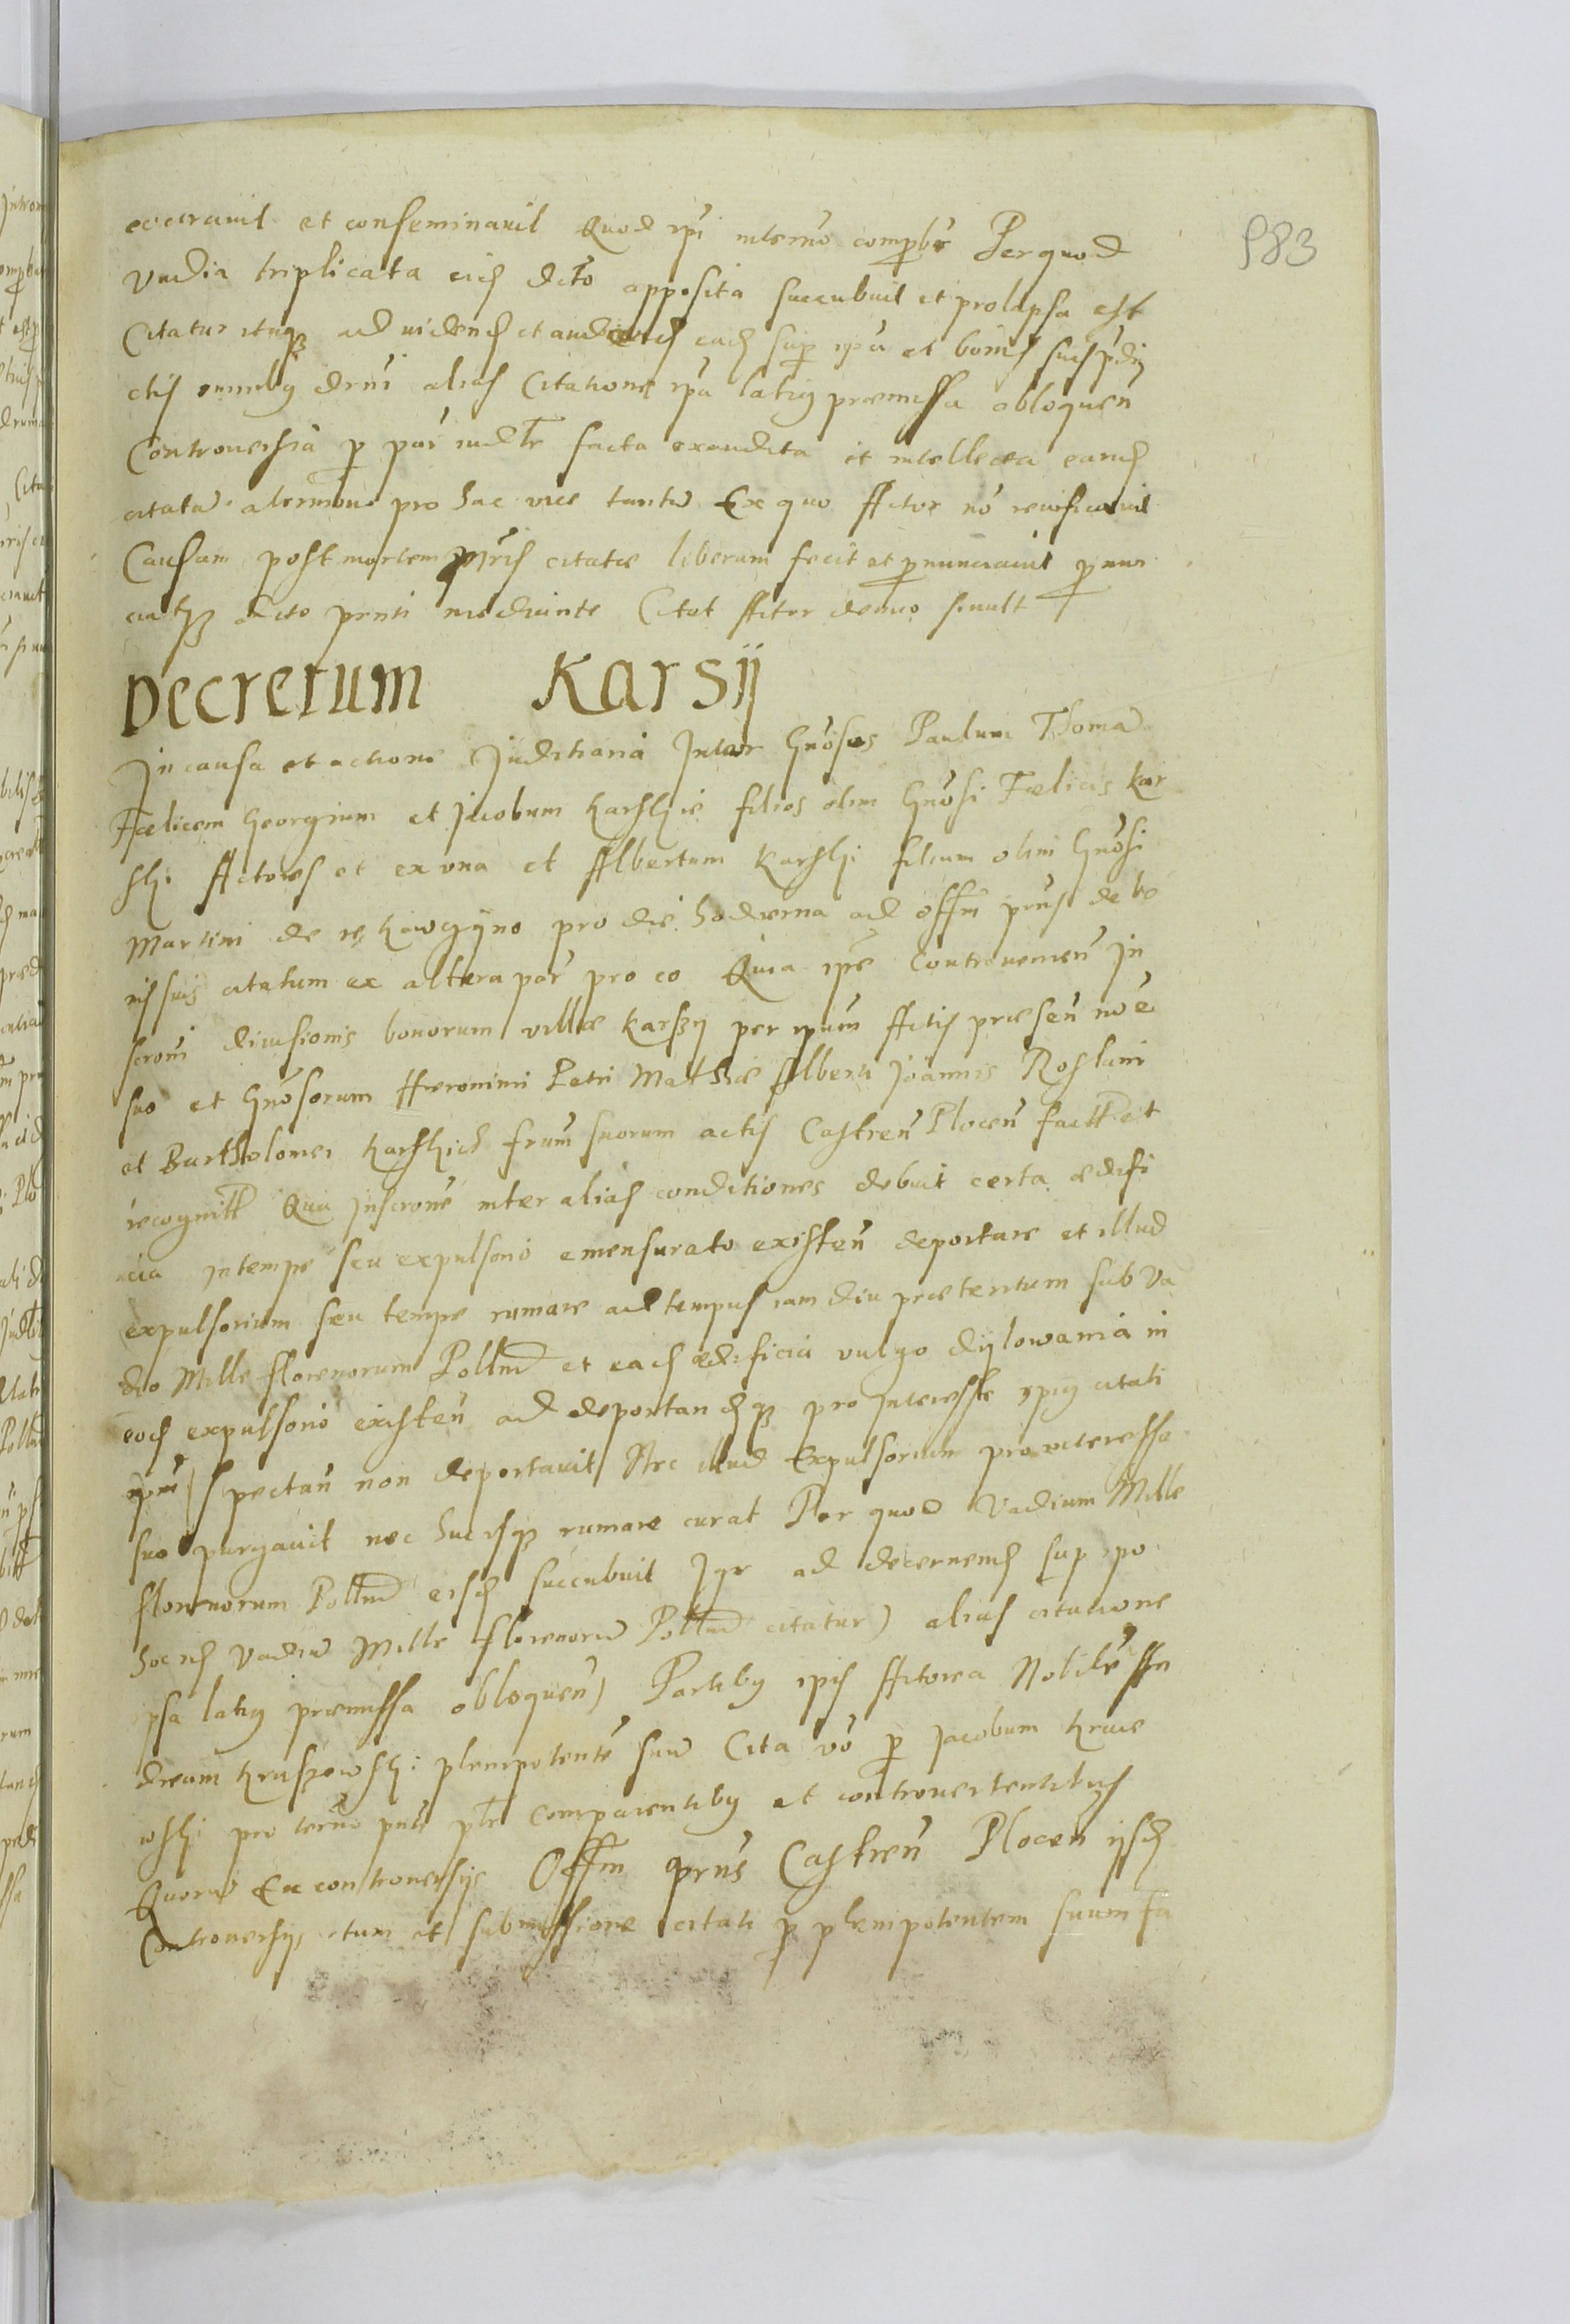 et conseminavit Quod ipi comprbr Perquod
Vadia triplicata eisd dcto apposita succubuit et prolapsa est
Citatur itaq ad vidend et audiend ead sup ipa et bonis suis
ctis omnibus drni alias Citatione ipa latius præmissa obloquen
Controversia p par iudlr facta exaudita et intellecta eand
citatã a termino pro hac vice tantũ Ex quo Actor nõ revificavit
Causam post mortem citatæ liberam fecit et pnunciavit pnun
ciatq dcto prnti mediante Citat Actor denuo si vult
Decretum Karsij
In causa et actione Juditiaria Inter Gnosos Paulum Thomã
Fælicem Georgium et Jacobum Karskie filios olim Gnosi Fælicis Kar
ski Actores et ex una et Albertum Karski filium olim Gnosi
Martini de pro die hodierna ad offm prns de bo
nis suis citatum ex altera par pro eo Quia ipse Contravenien In
scroni divisionis bonorum villæ Karszy per ipum Actis præsen noe
suo et Gnosorum Hieronimi Petri Mathiæ Alberti Joannis Roslani
et Bartholomei Karskich frum suorum actis Castren Plocen fact et
recognitt Qua Inscrone inter alias conditiones debuit certa ædifi
cia in tempe seu expulsorio emensurato existen deportare et illud
expulsorium seu tempe rumare ad tempus iam diu præteritum sub Va
dio Mille florenorum Pollm et ead ædificia vulgo dylowania in
eod expulsorio existen ad deportandq pro Interesse ipius citati
ipm spectan non deportavit Nec illud Expulsorium pro interesse
suo purgavit nec hucusq rumare curat Per quod Vadium Mille
florenorum Pollm eisd succubuit Igr ad decernend sup ipo
hocid vadiũ Mille florenorũ Pollm citatur) alias citatione
ipsa latius præmissa obloquen) Partibus ipis Actorea Nobilem An
dream Kraszewski plenipotente suũ Cita vo p Jacobum Kraie
wski pro termo pnti plr comparentibus et controvertentibus
Quorũ Ex controversijs Offm prns Castren Plocen ijsd
Controversijs tum et submissione citati p plenipotentem suum fa
983